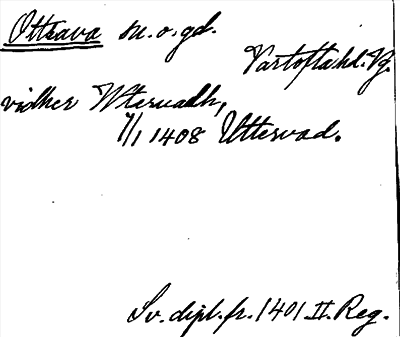 Ottrava sn. o. gd.
Vartofta hd. Vg.
vidher Wtervadh,
7/1 1408 Uttervad.
Sv. dipl. fr. 1401 II. Reg.